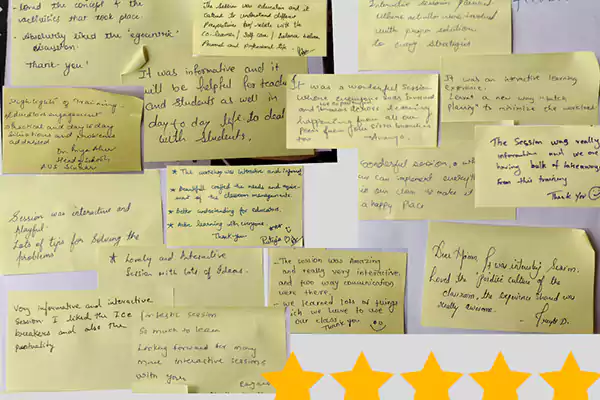 Loved the concept & the
activities that took place.
Absolutely liked the "egocentric"
discussion.
Thank you!
The session was education and it
to understand different
Perspectives to relate with the
Co-learner / Self care / balance between
Personal and Professional life.
Interactive session
with proper solutions
to every strategies
Highlights of Training -
Practical and day to day
situations and
addressed
It was informative and it
will be helpful for teachers
and students as well in
day-to-day life to deal
with students.
It was a wonderful session
where everyone was involved
and across learning
happening from all our
It was an interactive learning
experience.
Learnt a new way "batch
planning" to minimize the workload
The session was really
informative and we are
having both of takeaways
from this training
Thank you
* This workshop was interactive and inspiring
* Beautifully crafted the needs and require-
ment of the classroom management.
* Better understanding for educators.
* learning with everyone.
Thank you
Wonderful session.
can implement
in our class to make it
a happy place
Session was interactive and
playful.
Lots of tips for solving the
problems
* Lovely and Interactive
Session with lots of Ideas.
- The session was Amazing
and really very interactive,
and two way communication
were there.
- We learned lots of things
which we have to use
in our class
Thank you
It was session.
Loved the "positive culture" of the
classroom, the experience shared was
really awesome.
Very informative and interactive
session. I liked the Ice
breakers and also the
Fantastic session
So much to learn
Looking forward for many
more interactive sessions
with you